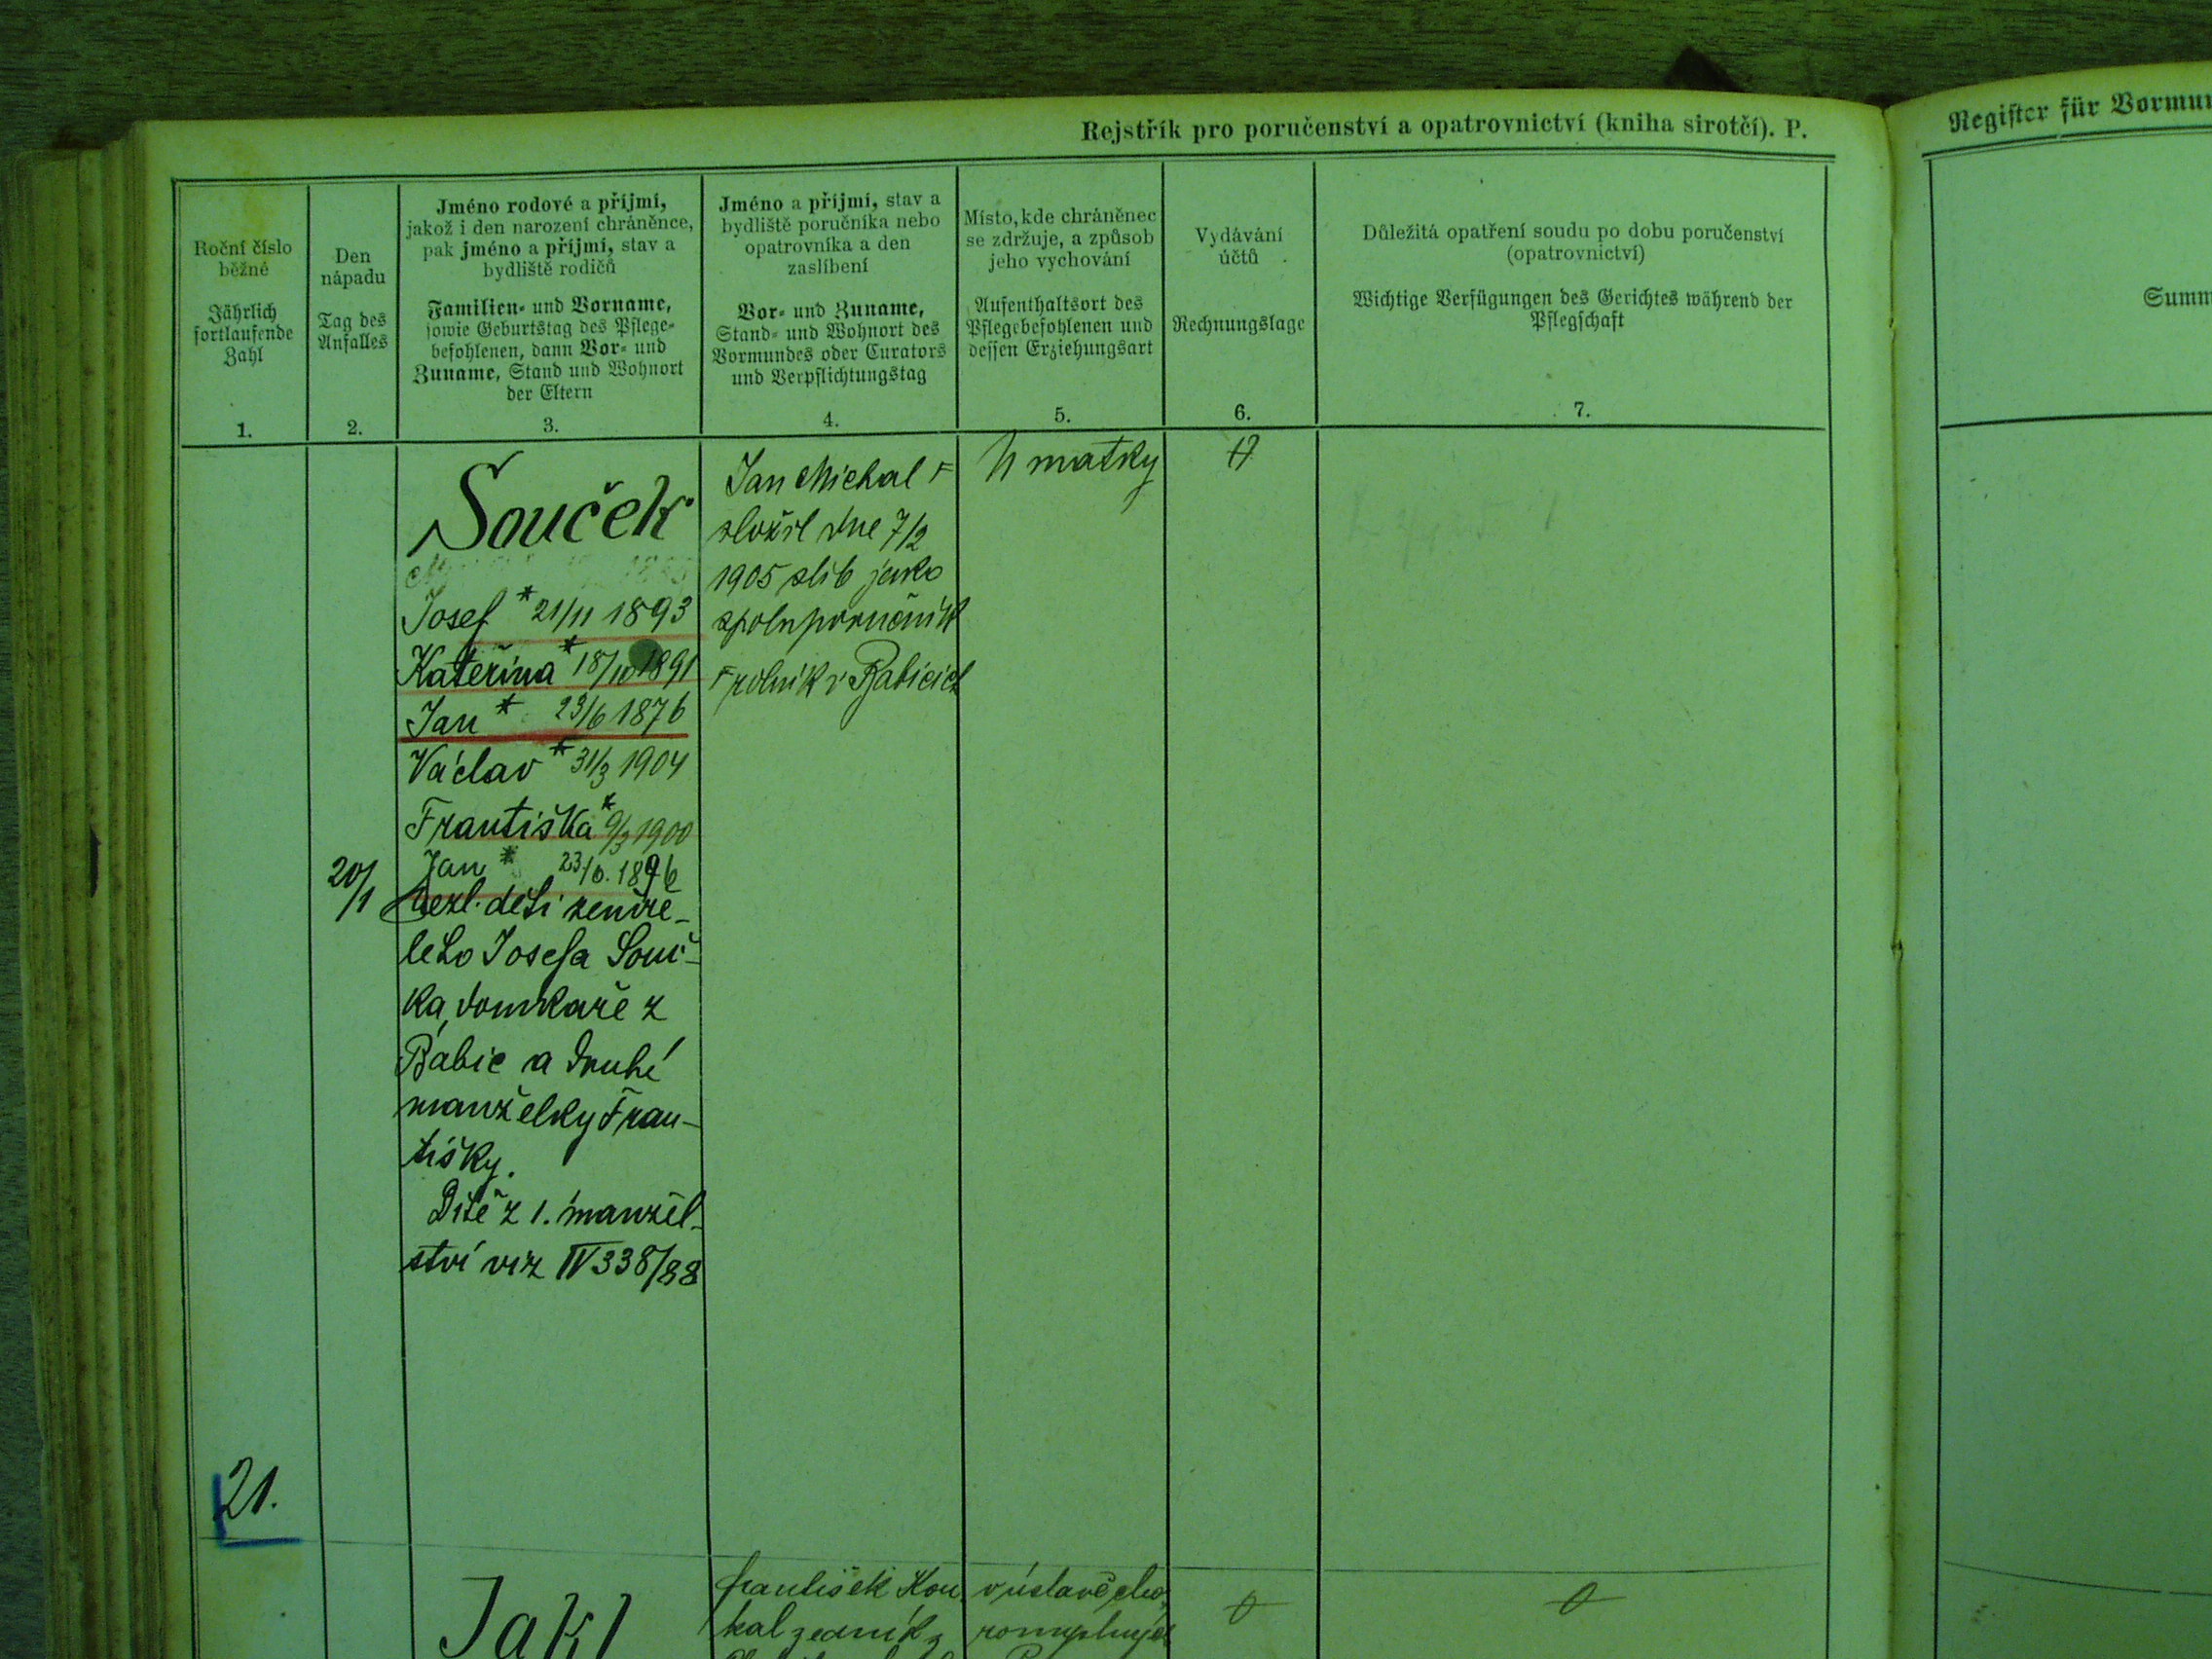 Rejstřík pro poručenství a opatrovnictví (kniha sirotčí). P.
Register für Vormun
Roční číslo
běžné
Jährlich
fortlaufende
Zahl
1.
Den
nápadu
Tag des
Anfalles
2.
Jméno rodové a příjmí,
jakož i den narození chráněnce,
pak jméno a příjmí, stav a
bydliště rodičů
Familien- und Vorname,
sowie Geburtstag des Pflege-
befohlenen, dann Vor- und
Zuname, Stand und Wohnort
der Eltern
3.
Jméno a příjmí, stav a
bydliště poručníka nebo
opatrovníka a den
zaslíbení
Vor- und Zuname,
Stand- und Wohnort des
Vormundes oder Curators
und Verpflichtungstag
4.
Místo, kde chráněnec
se zdržuje, a způsob
jeho vychování
Aufenthaltsort des
Pflegebefohlenen und
dessen Erziehungsart
5.
Vydávání
účtů
Rechnungslage
6.
Důležitá opatření soudu po dobu poručenství
(opatrovnictví)
Wichtige Verfügungen des Gerichtes während der
Pflegschaft
7.
Summ
20/1
Souček
Josef * 21/11 1893
Kateřina * 18/10 1891
Jan * 23/6 1876
Václav * 31/3 1904
Františka * 9/3 1900
Jan * 23/6. 1896
nezl. děti zemře-
lého Josefa Souč-
ka, domkaře z
Babic a druhé
manželky Fran-
tišky.
Dítě z 1. manžel-
ství viz IV 338/88
Jan Michal
složil dne 7/2
1905 slib jako
spoluporučník
rolník v Babicích
U matky
21.
Jakl
František Kou-
kal zedník z
v ústavě cho-
romyslných